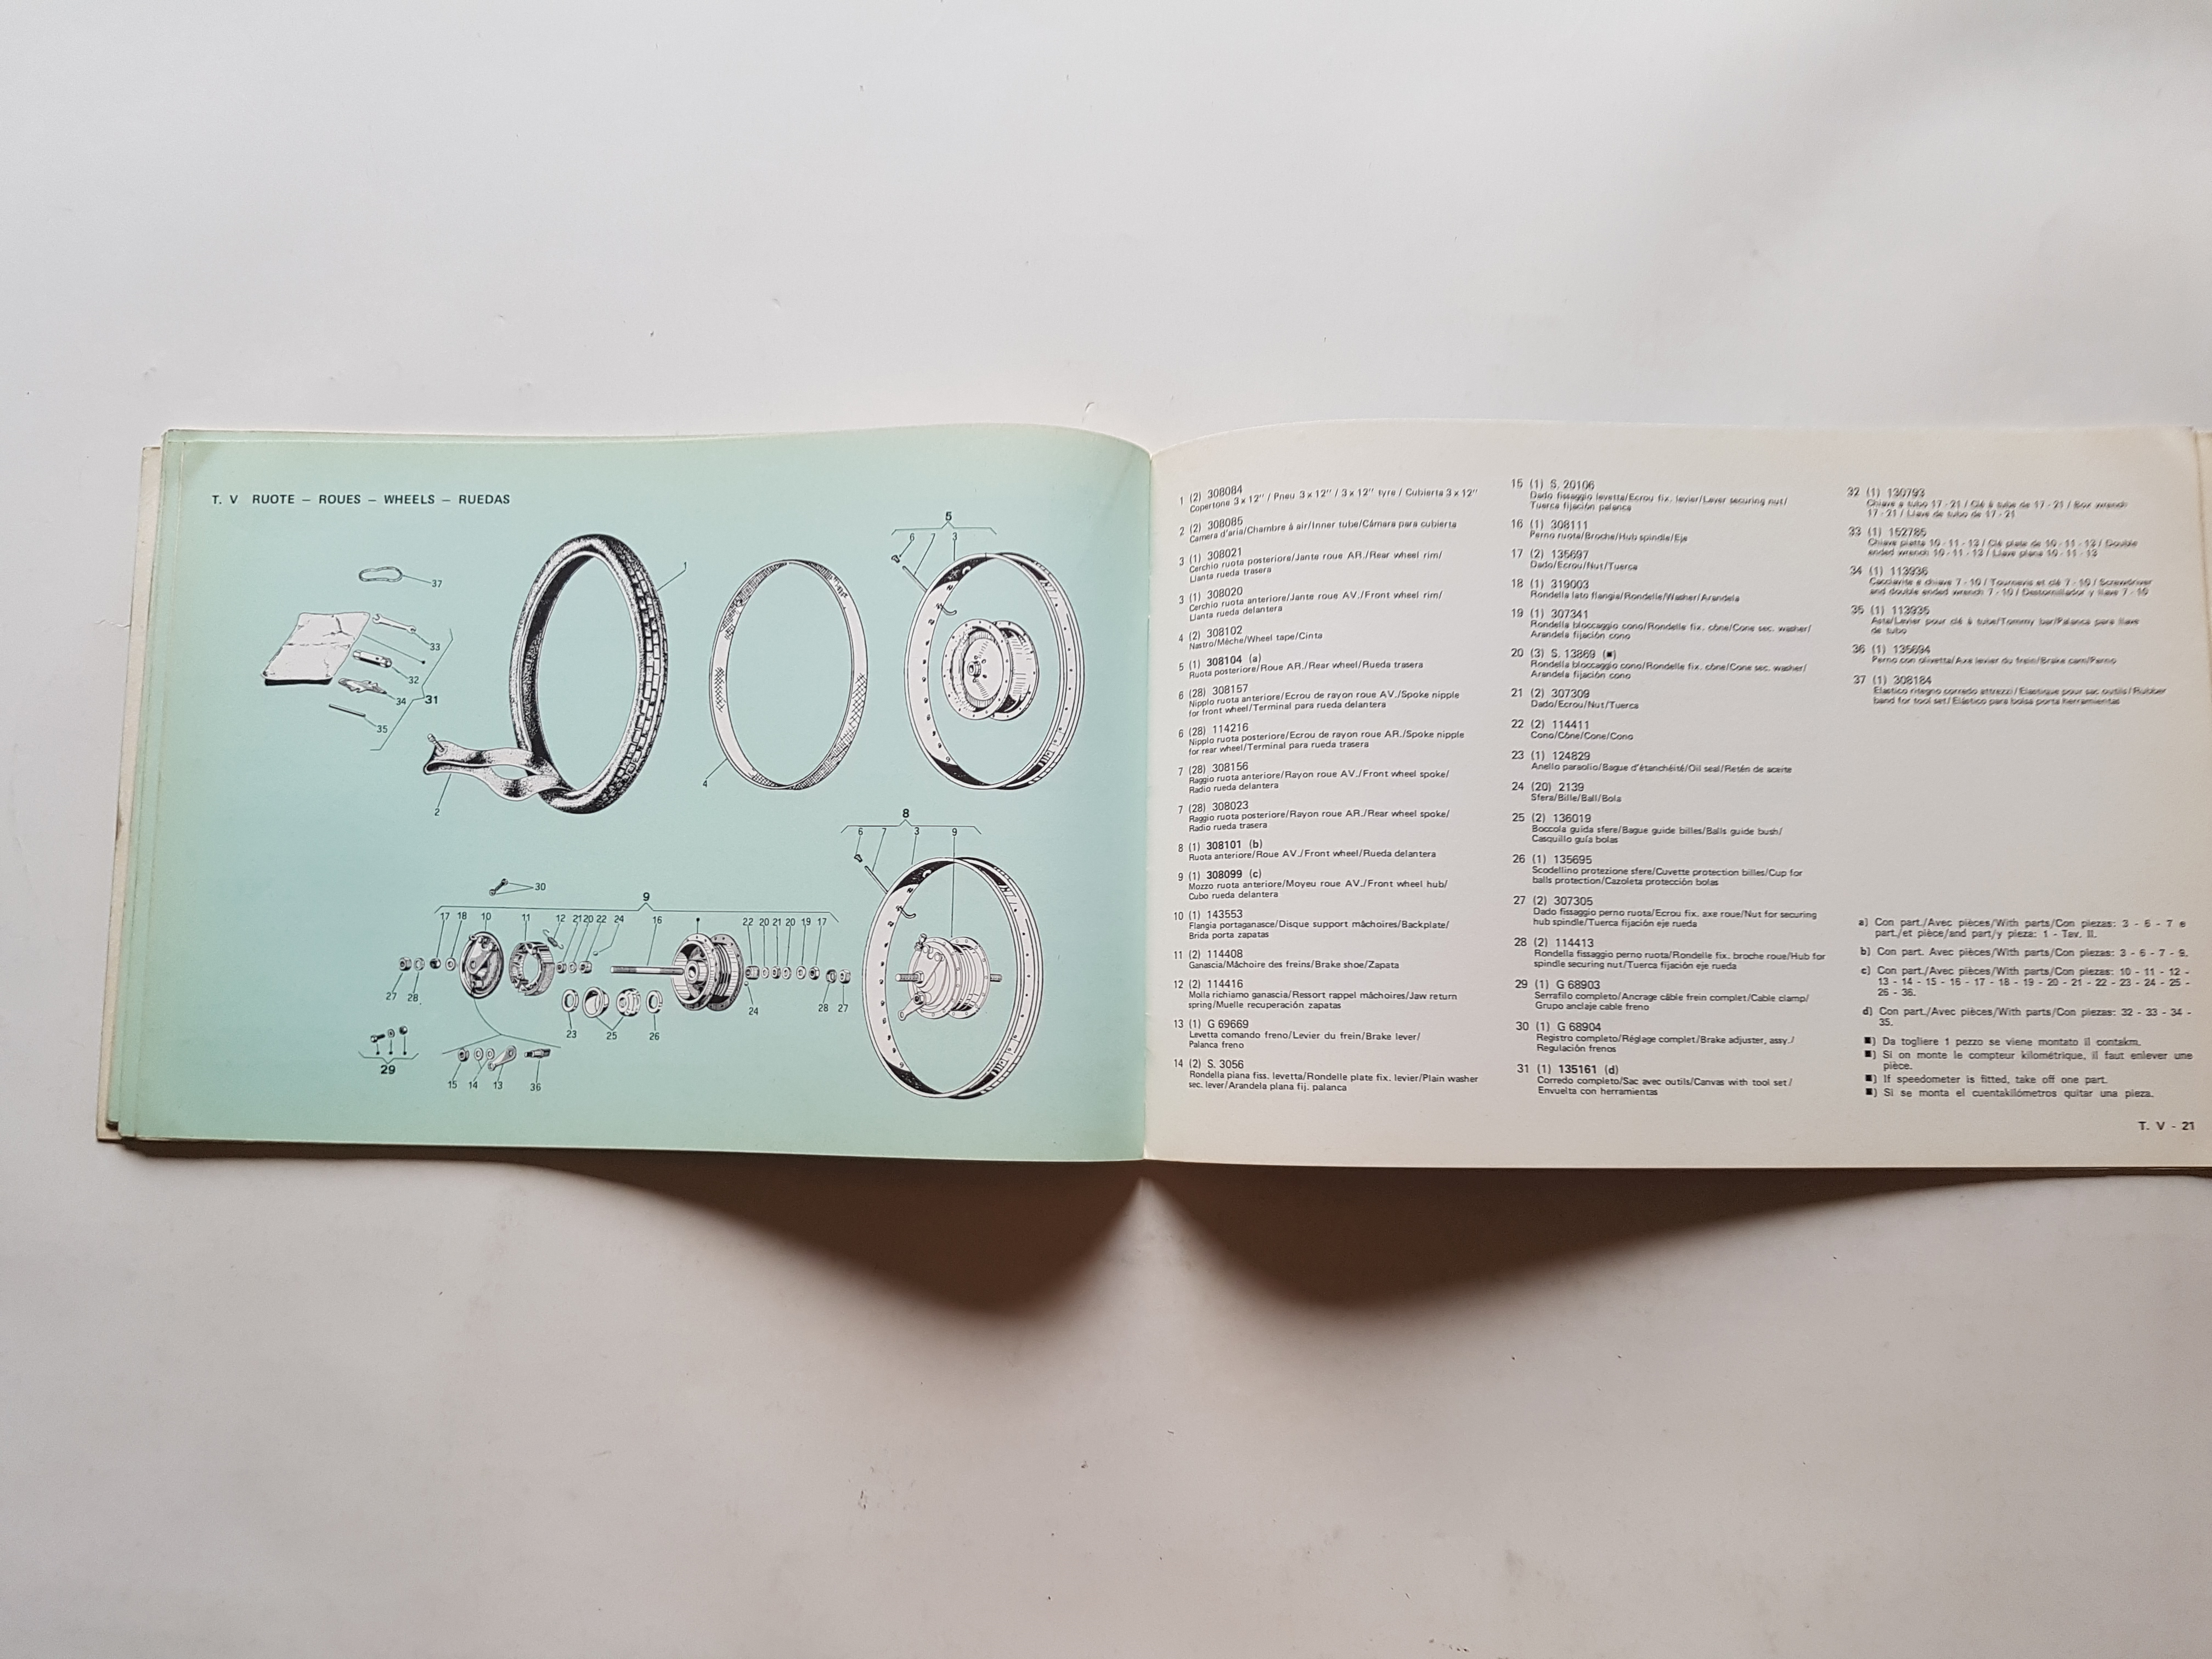 T. V RUOTE — ROUES — WHEELS — RUEDAS
37
33
32
34
31
35
1
2
4
5
6 7 3
8
6 7 3 9
30
9
17 18 10 11 12 21 20 22 24 16 22 20 21 20 19 17
27 28
23 25 26
24
28 27
29
15 14 13 36
1 (2) 308084
Copertone 3 x 12'' / Pneu 3 x 12'' / 3 x 12'' tyre / Cubierta 3 x 12''
2 (2) 308085
Camera d'aria/Chambre à air/Inner tube/Cámara para cubierta
3 (1) 308021
Cerchio ruota posteriore/Jante roue AR./Rear wheel rim/
Llanta rueda trasera
3 (1) 308020
Cerchio ruota anteriore/Jante roue AV./Front wheel rim/
Llanta rueda delantera
4 (2) 308102
Nastro/Mèche/Wheel tape/Cinta
5 (1) 308104 (a)
Ruota posteriore/Roue AR./Rear wheel/Rueda trasera
6 (28) 308157
Nipplo ruota anteriore/Ecrou de rayon roue AV./Spoke nipple
for front wheel/Terminal para rueda delantera
6 (28) 114216
Nipplo ruota posteriore/Ecrou de rayon roue AR./Spoke nipple
for rear wheel/Terminal para rueda trasera
7 (28) 308156
Raggio ruota anteriore/Rayon roue AV./Front wheel spoke/
Radio rueda delantera
7 (28) 308023
Raggio ruota posteriore/Rayon roue AR./Rear wheel spoke/
Radio rueda trasera
8 (1) 308101 (b)
Ruota anteriore/Roue AV./Front wheel/Rueda delantera
9 (1) 308099 (c)
Mozzo ruota anteriore/Moyeu roue AV./Front wheel hub/
Cubo rueda delantera
10 (1) 143553
Flangia portaganasce/Disque support mâchoires/Backplate/
Brida porta zapatas
11 (2) 114408
Ganascia/Mâchoire des freins/Brake shoe/Zapata
12 (2) 114416
Molla richiamo ganascia/Ressort rappel mâchoires/Jaw return
spring/Muelle recuperación zapatas
13 (1) G 69669
Levetta comando freno/Levier du frein/Brake lever/
Palanca freno
14 (2) S. 3056
Rondella piana fiss. levetta/Rondelle plate fix. levier/Plain washer
sec. lever/Arandela plana fij. palanca
15 (1) S. 20106
Dado fissaggio levetta/Ecrou fix. levier/Lever securing nut/
Tuerca fijación palanca
16 (1) 308111
Perno ruota/Broche/Hub spindle/Eje
17 (2) 135697
Dado/Ecrou/Nut/Tuerca
18 (1) 319003
Rondella lato flangia/Rondelle/Washer/Arandela
19 (1) 307341
Rondella bloccaggio cono/Rondelle fix. cône/Cone sec. washer/
Arandela fijación cono
20 (3) S. 13869 (■)
Rondella bloccaggio cono/Rondelle fix. cône/Cone sec. washer/
Arandela fijación cono
21 (2) 307309
Dado/Ecrou/Nut/Tuerca
22 (2) 114411
Cono/Cône/Cone/Cono
23 (1) 124829
Anello paraolio/Bague d'étanchéité/Oil seal/Retén de aceite
24 (20) 2139
Sfera/Bille/Ball/Bola
25 (2) 136019
Boccola guida sfere/Bague guide billes/Balls guide bush/
Casquillo guía bolas
26 (1) 135695
Scodellino protezione sfere/Cuvette protection billes/Cup for
balls protection/Cazoleta protección bolas
27 (2) 307305
Dado fissaggio perno ruota/Ecrou fix. axe roue/Nut for securing
hub spindle/Tuerca fijación eje rueda
28 (2) 114413
Rondella fissaggio perno ruota/Rondelle fix. broche roue/Hub for
spindle securing nut/Tuerca fijación eje rueda
29 (1) G 68903
Serrafilo completo/Ancrage câble frein complet/Cable clamp/
Grupo anclaje cable freno
30 (1) G 68904
Registro completo/Réglage complet/Brake adjuster, assy./
Regulación frenos
31 (1) 135161 (d)
Corredo completo/Sac avec outils/Canvas with tool set/
Envuelta con herramientas
32 (1) 130793
Chiave a tubo 17 - 21 / Clé à tube de 17 - 21 / Box wrench
17 - 21 / Llave de tubo de 17 - 21
33 (1) 152785
Chiave piatta 10 - 11 - 13 / Clé plate de 10 - 11 - 13 / Double
ended wrench 10 - 11 - 13 / Llave plana 10 - 11 - 13
34 (1) 113936
Cacciavite e chiave 7 - 10 / Tournevis et clé 7 - 10 / Screwdriver
and double ended wrench 7 - 10 / Destornillador y llave 7 - 10
35 (1) 113935
Asta/Levier pour clé à tube/Tommy bar/Palanca para llave
de tubo
36 (1) 135694
Perno con olivetta/Axe levier du frein/Brake cam/Perno
37 (1) 308184
Elastico ritegno corredo attrezzi/Elastique pour sac outils/Rubber
band for tool set/Elástico para bolsa porta herramientas
a) Con part./Avec pièces/With parts/Con piezas: 3 - 6 - 7 e
part./et pièce/and part/y pieza: 1 - Tav. II.
b) Con part. Avec pièces/With parts/Con piezas: 3 - 6 - 7 - 9.
c) Con part./Avec pièces/With parts/Con piezas: 10 - 11 - 12 -
13 - 14 - 15 - 16 - 17 - 18 - 19 - 20 - 21 - 22 - 23 - 24 - 25 -
26 - 36.
d) Con part./Avec pièces/With parts/Con piezas: 32 - 33 - 34 -
35.
■) Da togliere 1 pezzo se viene montato il contakm.
■) Si on monte le compteur kilométrique, il faut enlever une
pièce.
■) If speedometer is fitted, take off one part.
■) Si se monta el cuentakilómetros quitar una pieza.
T. V - 21